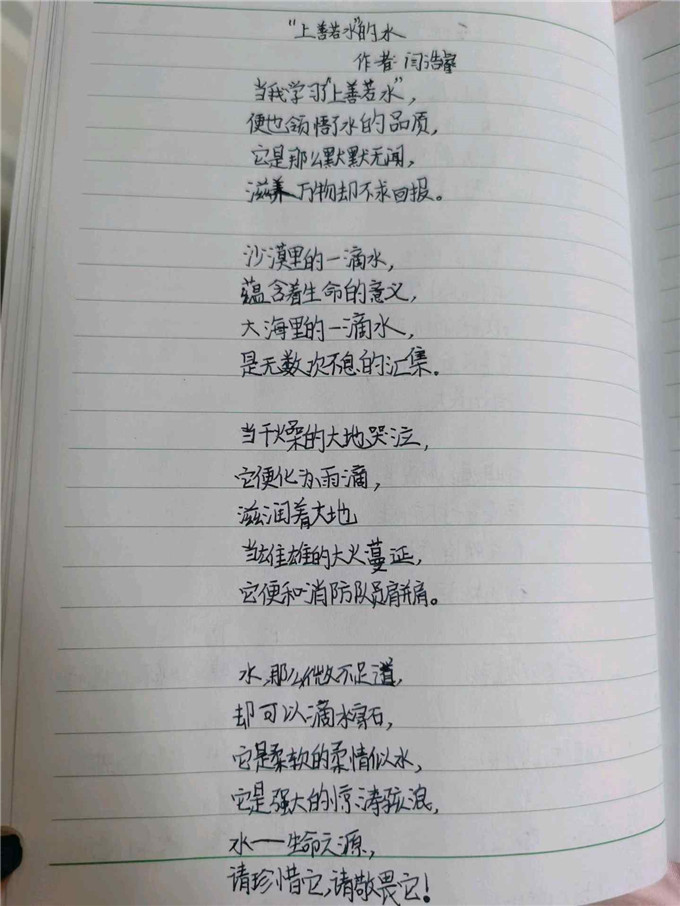 “上善若水”的水
作者:闫浩睿
当我学习了“上善若水”,
便也领悟了水的品质,
它是那么默默无闻,
滋养万物却不求回报。
沙漠里的一滴水,
蕴含着生命的意义,
大海里的一滴水,
是无数次不息的汇集。
当干燥的大地哭泣,
它便化为雨滴,
滋润着大地
当雄雄的大火蔓延,
它便和消防队员肩并肩。
水,那么微不足道,
却可以滴水穿石,
它是柔软的柔情似水,
它是强大的惊涛骇浪,
水——生命之源,
请珍惜它,请敬畏它!